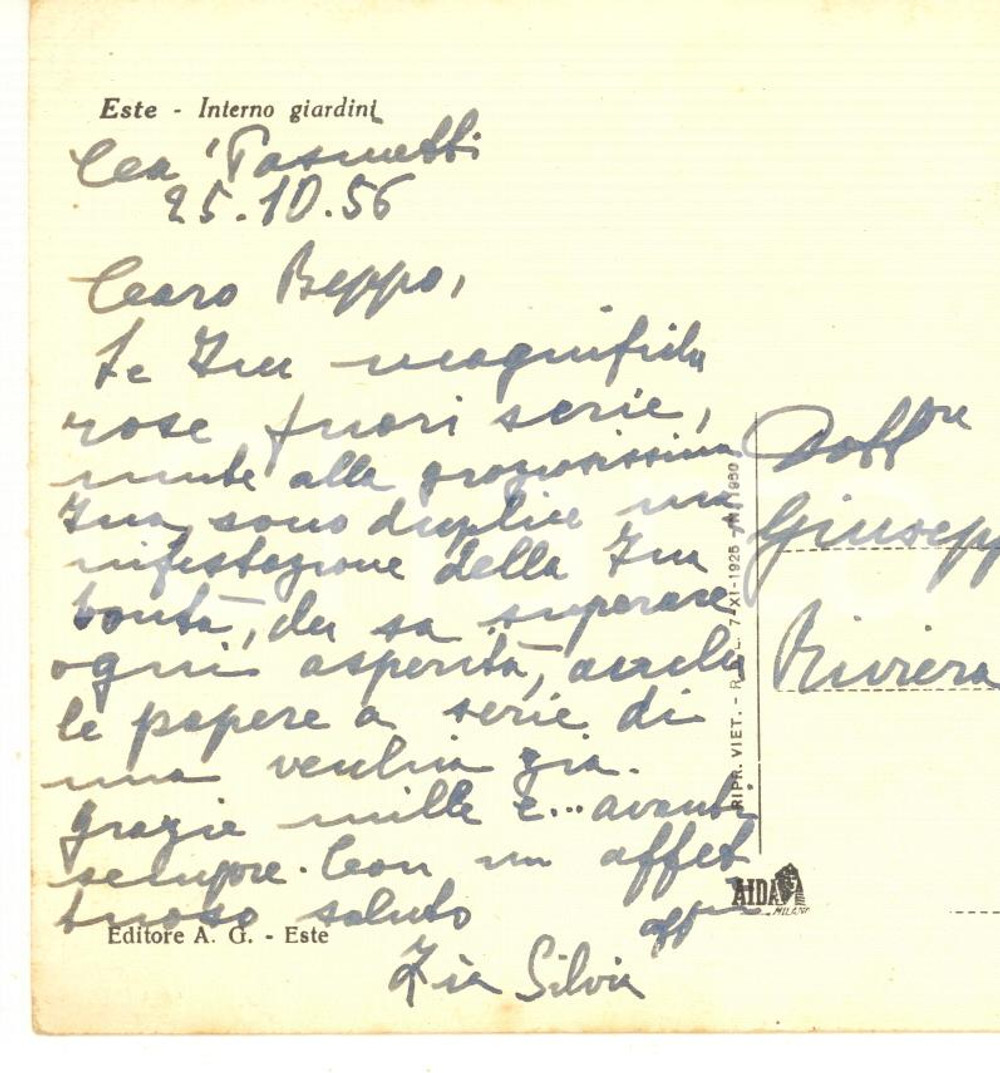 Este - Interno giardini
Ca'
25.10.56
Caro Beppo,
le Tue magnifiche
rose fuori serie,
unite alla graziosissima
Tua, sono duplice ma
nifestazione della Tua
bontà, che sa superare
ogni asperità, anche
le papere a serie di
una vecchia zia.
Grazie mille e... avanti
sempre. Con un affet
tuoso saluto
aff.ma
Zia Silvia
Editore A. G. - Este
RIPR. VIET. - R.D.L. 7-XI-1925
AIDA
MILANO
Dott.re
Giusepp
Riviera